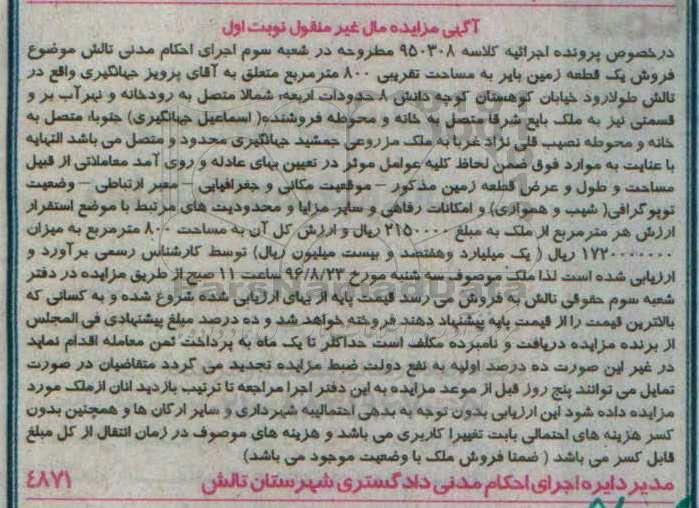 آگهی مزایده مال غیر منقول نوبت اول
درخصوص پرونده اجرائیه کلاسه ۹۵۰۳۰۸ مطروحه در شعبه سوم اجرای احکام مدنی تالش موضوع
فروش یک قطعه زمین بایر به مساحت تقریبی ۸۰۰ مترمربع متعلق به آقای پرویز جهانگیری واقع در
تالش طولارود خیابان کوهستان کوچه دانش ۸ حدودات اربعه: شمالا متصل به رودخانه و نهرآب بر و
قسمتی نیز به ملک بایع شرقا متصل به خانه و محوطه فروشنده( اسماعیل جهانگیری) جنوبا: متصل به
خانه و محوطه نصیب قلی نژاد غربا به ملک مزروعی جمشید جهانگیری محدود و متصل می باشد النهایه
با عنایت به موارد فوق ضمن لحاظ کلیه عوامل موثر در تعیین بهای عادله و روی آمد معاملاتی از قبیل
مساحت و طول و عرض قطعه زمین مذکور – موقعیت مکانی و جغرافیایی – معبر ارتباطی – وضعیت
توپوگرافی( شیب و همواری) و امکانات رفاهی و سایر مزایا و محدودیت های مرتبط با موضع استقرار
ارزش هر مترمربع از ملک به مبلغ ۲۱۵۰۰۰۰ ریال و ارزش کل آن به مساحت ۸۰۰ مترمربع به میزان
۱۷۲۰۰۰۰۰۰۰ ریال ( یک میلیارد وهفتصد و بیست میلیون ریال) توسط کارشناس رسمی برآورد و
ارزیابی شده است لذا ملک موصوف سه شنبه مورخ ۹۶/۸/۲۳ ساعت ۱۱ صبح از طریق مزایده در دفتر
شعبه سوم حقوقی تالش به فروش می رسد قیمت پایه از بهای ارزیابی شده شروع شده و به کسانی که
بالاترین قیمت را از قیمت پایه پیشنهاد دهند فروخته خواهد شد و ده درصد مبلغ پیشنهادی فی المجلس
از برنده مزایده دریافت و نامبرده مکلف است حداکثر تا یک ماه به پرداخت ثمن معامله اقدام نماید
در غیر این صورت ده درصد اولیه به نفع دولت ضبط مزایده تجدید می گردد متقاضیان در صورت
تمایل می توانند پنج روز قبل از موعد مزایده به این دفتر اجرا مراجعه تا ترتیب بازدید انان ازملک مورد
مزایده داده شود این ارزیابی بدون توجه به بدهی احتمالیبه شهرداری و سایر ارکان ها و همچنین بدون
کسر هزینه های احتمالی بابت تغییرا کاربری می باشد و هزینه های موصوف در زمان انتقال از کل مبلغ
قابل کسر می باشد ( ضمنا فروش ملک با وضعیت موجود می باشد)
مدیر دایره اجرای احکام مدنی دادگستری شهرستان تالش ٤٨٧١
ParsNamadData